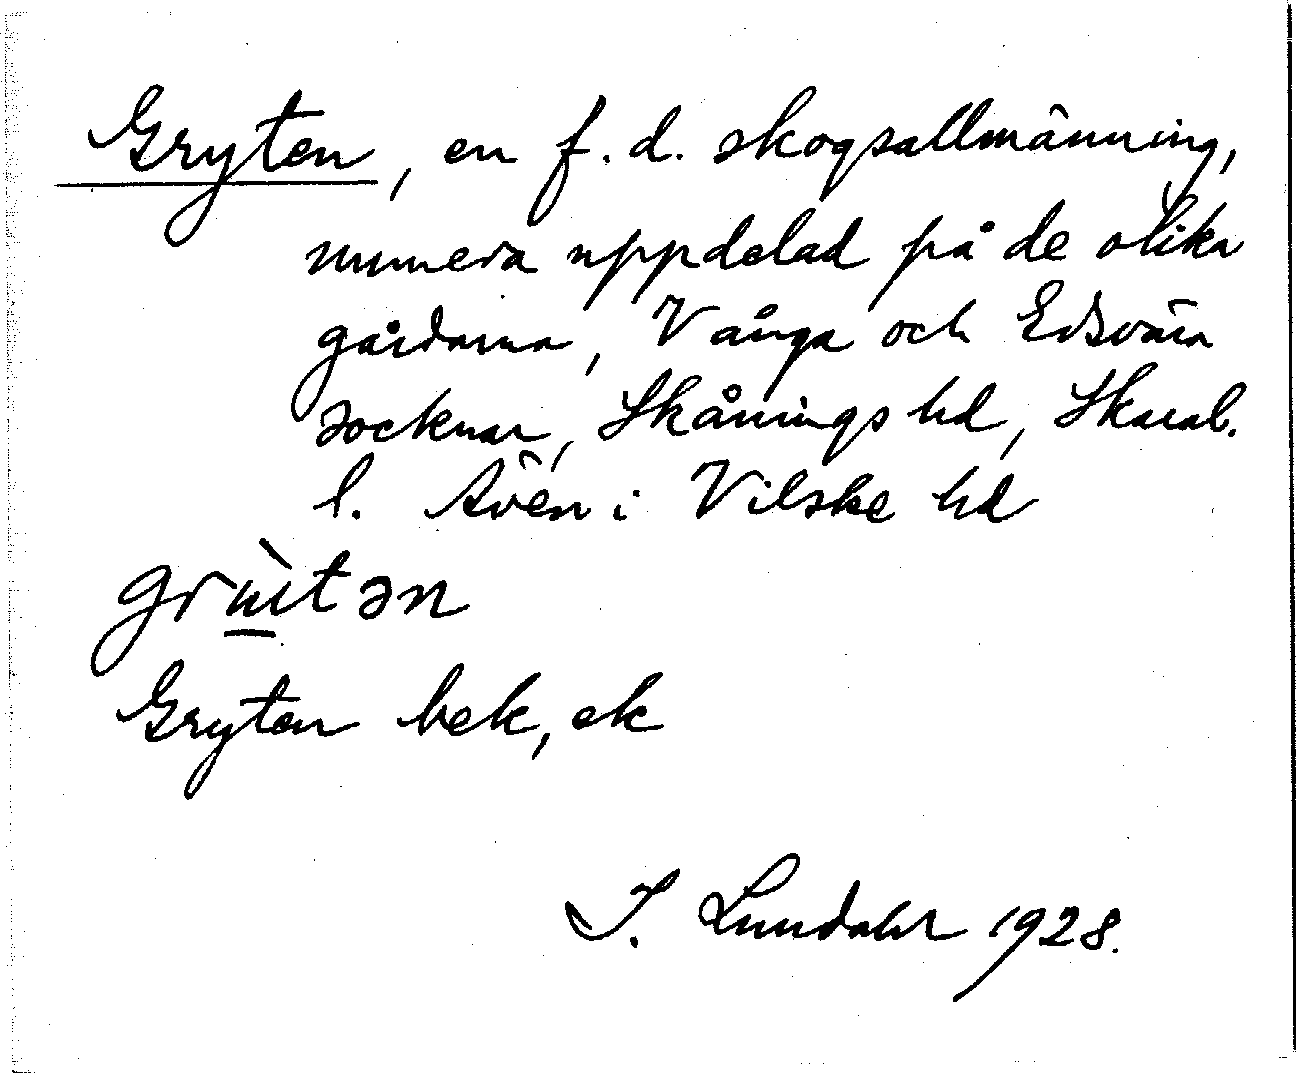 Gryten, en f. d. skogsallmänning,
numera uppdelad på de olika
gårdarna, Vånga och Edsvära
socknar, Skånings hd, Skarab.
l. Även i Vilske hd
Gryten bek, ek
I. Lundahl 1928.